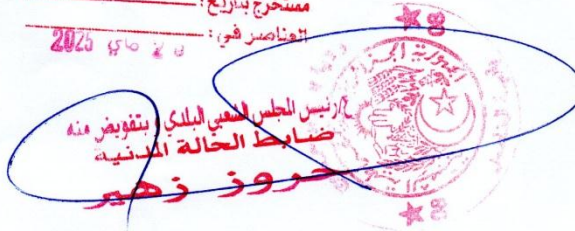 مستخرج بتاريخ :
العناصر في :
2025 ماي
ع/رئيس المجلس الشعبي البلدي و بتفويض منه
ضابط الحالة المدنية
حروز زهير